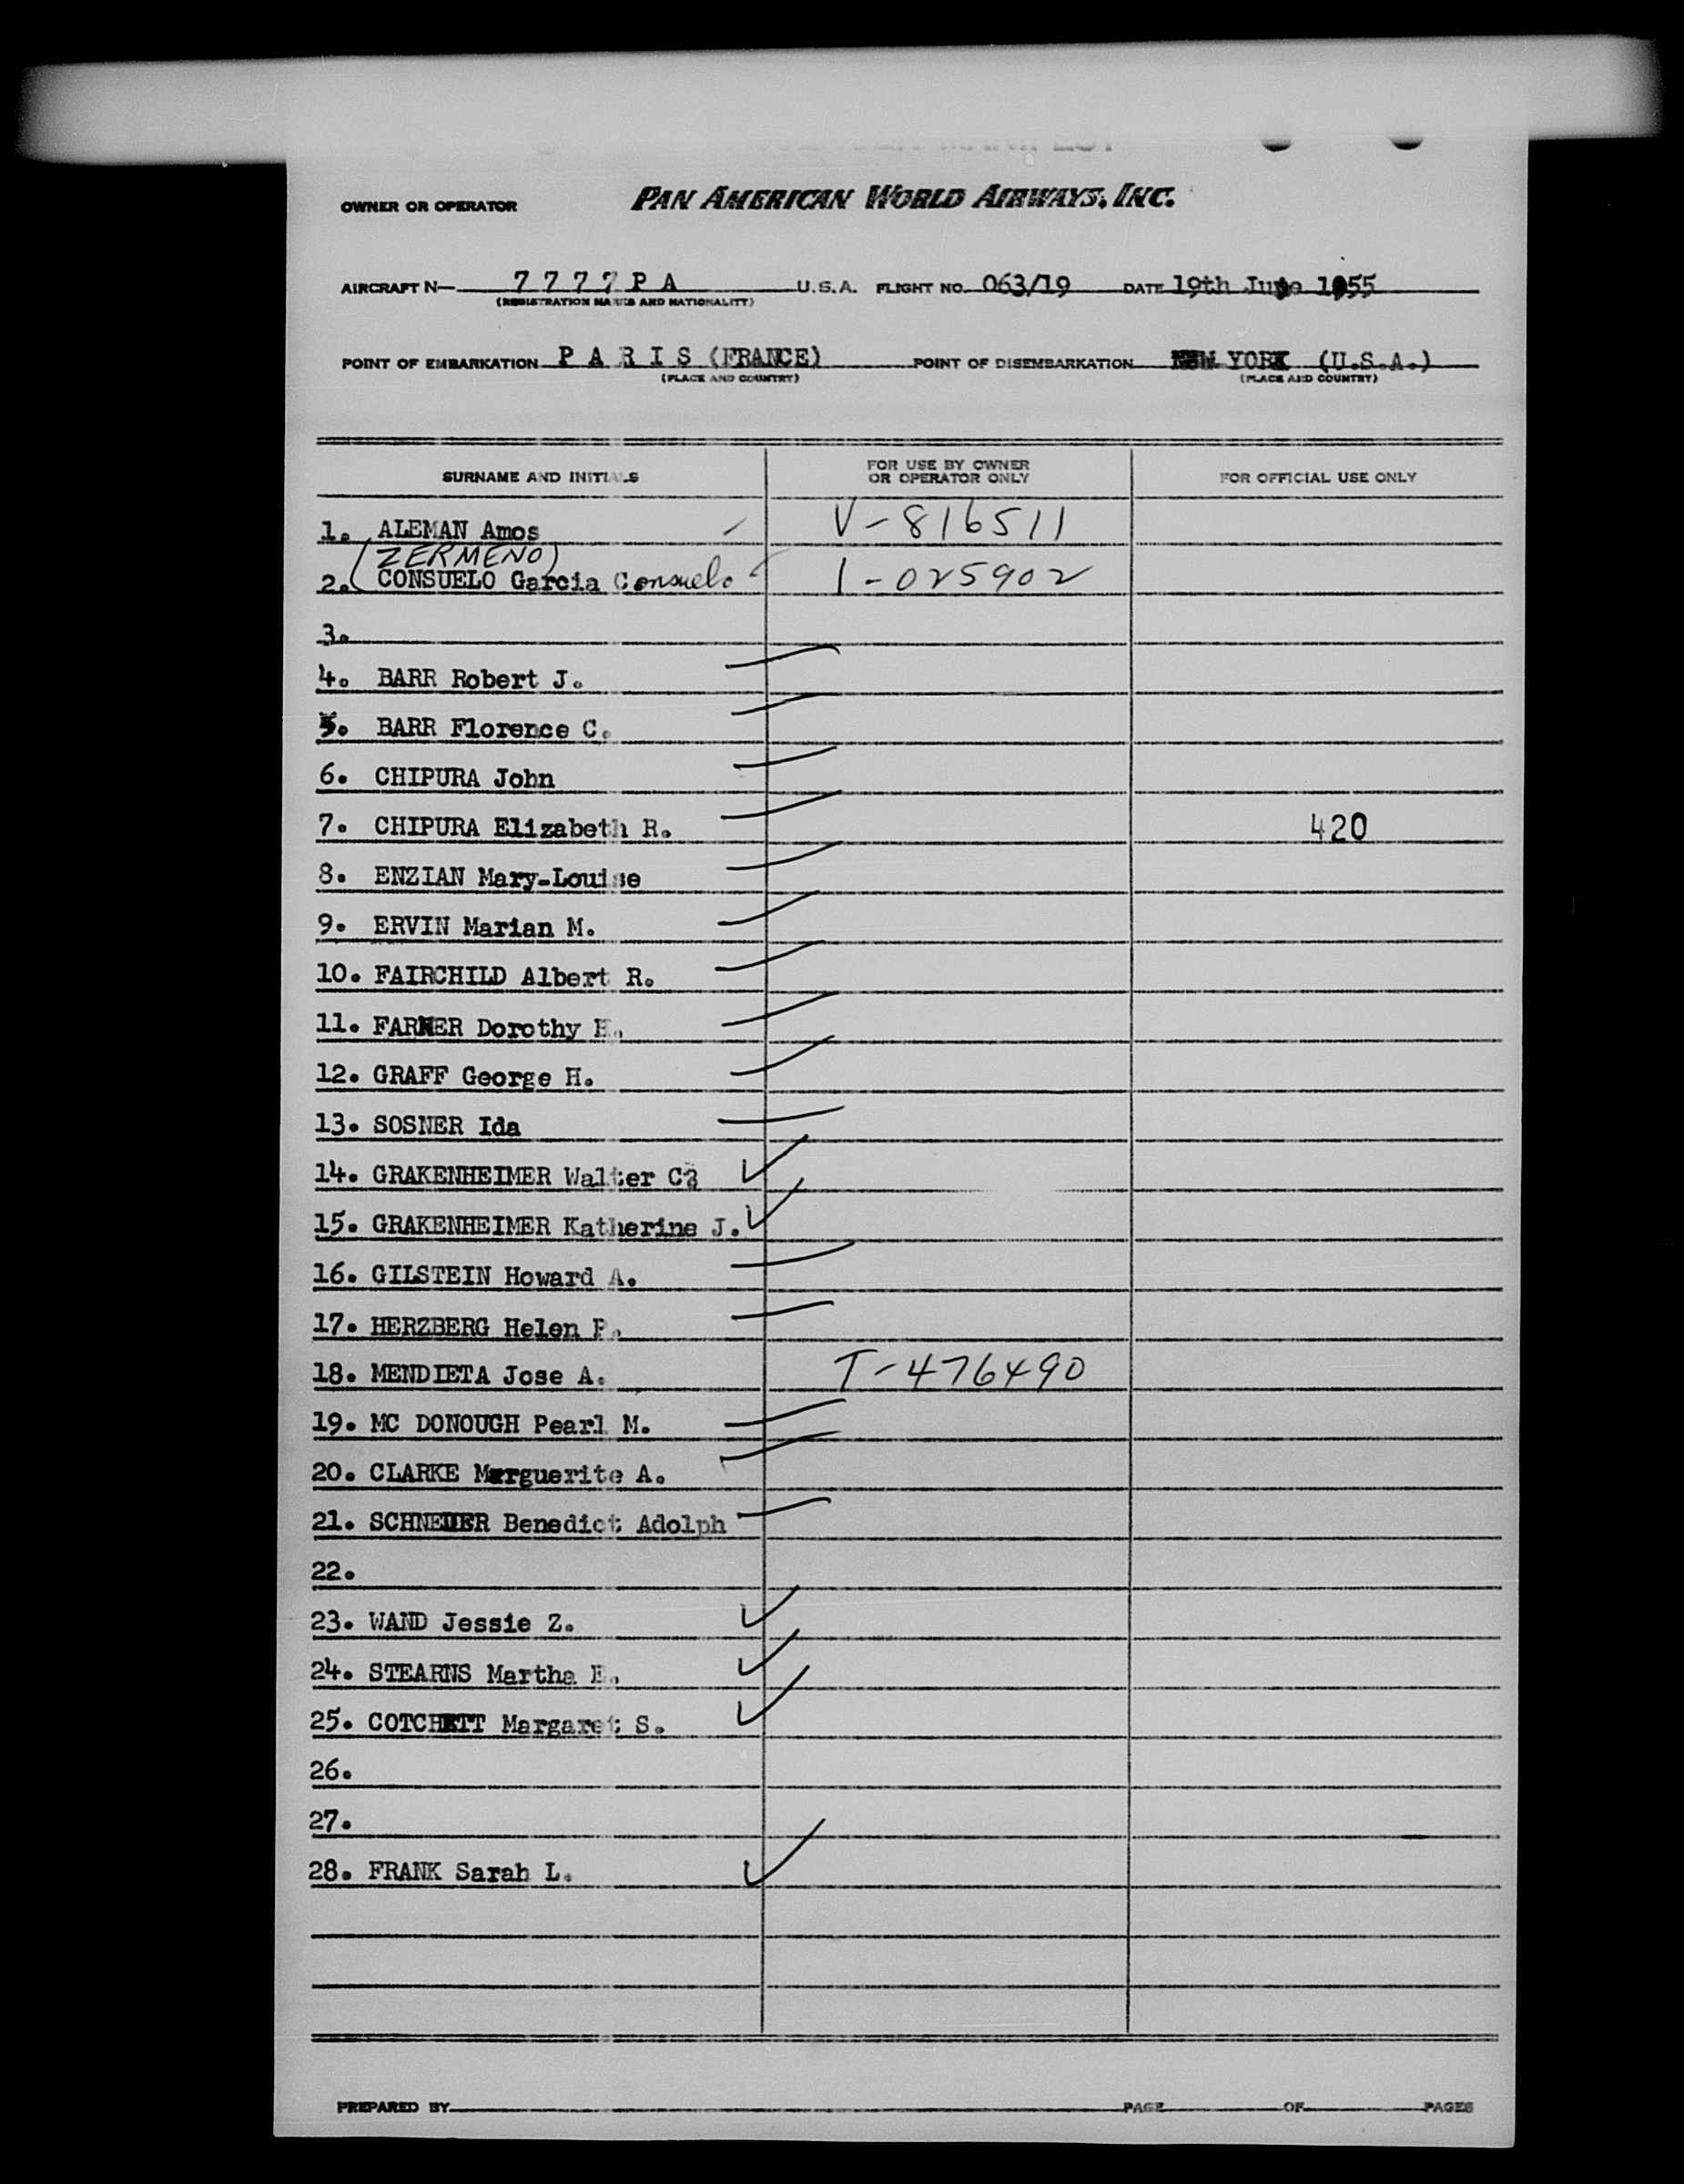 OWNER OR OPERATOR PAN AMERICAN WORLD AIRWAYS, INC.
AIRCRAFT N— 7 7 7 7 P A U.S.A. FLIGHT NO. 063/19 DATE 19th June 1955
(REGISTRATION MARKS AND NATIONALITY)
POINT OF EMBARKATION P A R I S (FRANCE) POINT OF DISEMBARKATION NEW YORK (U.S.A.)
(PLACE AND COUNTRY) (PLACE AND COUNTRY)
SURNAME AND INITIALS FOR USE BY OWNER OR OPERATOR ONLY FOR OFFICIAL USE ONLY
1. ALEMAN Amos V-816511
(ZERMENO)
2. CONSUELO Garcia Consuelo 1-025902
3.
4. BARR Robert J.
5. BARR Florence C.
6. CHIPURA John
7. CHIPURA Elizabeth R. 420
8. ENZIAN Mary-Louise
9. ERVIN Marian M.
10. FAIRCHILD Albert R.
11. FARNER Dorothy
12. GRAFF George H.
13. SOSNER Ida
14. GRAKENHEIMER Walter
15. GRAKENHEIMER Katherine J.
16. GILSTEIN Howard A.
17. HERZBERG Helen
18. MENDIETA Jose A. T-476490
19. MC DONOUGH Pearl M.
20. CLARKE Marguerite A.
21. Benedict Adolph
22.
23. WAND Jessie Z.
24. STEARNS Martha E.
25. COTCHETT Margaret S.
26.
27.
28. FRANK Sarah L.
PREPARED BY PAGE OF PAGES